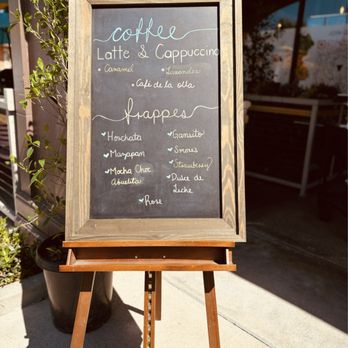 coffee
Latte & Cappuccino
Caramel Lavender
Café de la olla
frappes
Horchata Gansito
Mazapan Smores
Mocha Choc Strawberry
Abuelita Dulce de
Leche
Rose